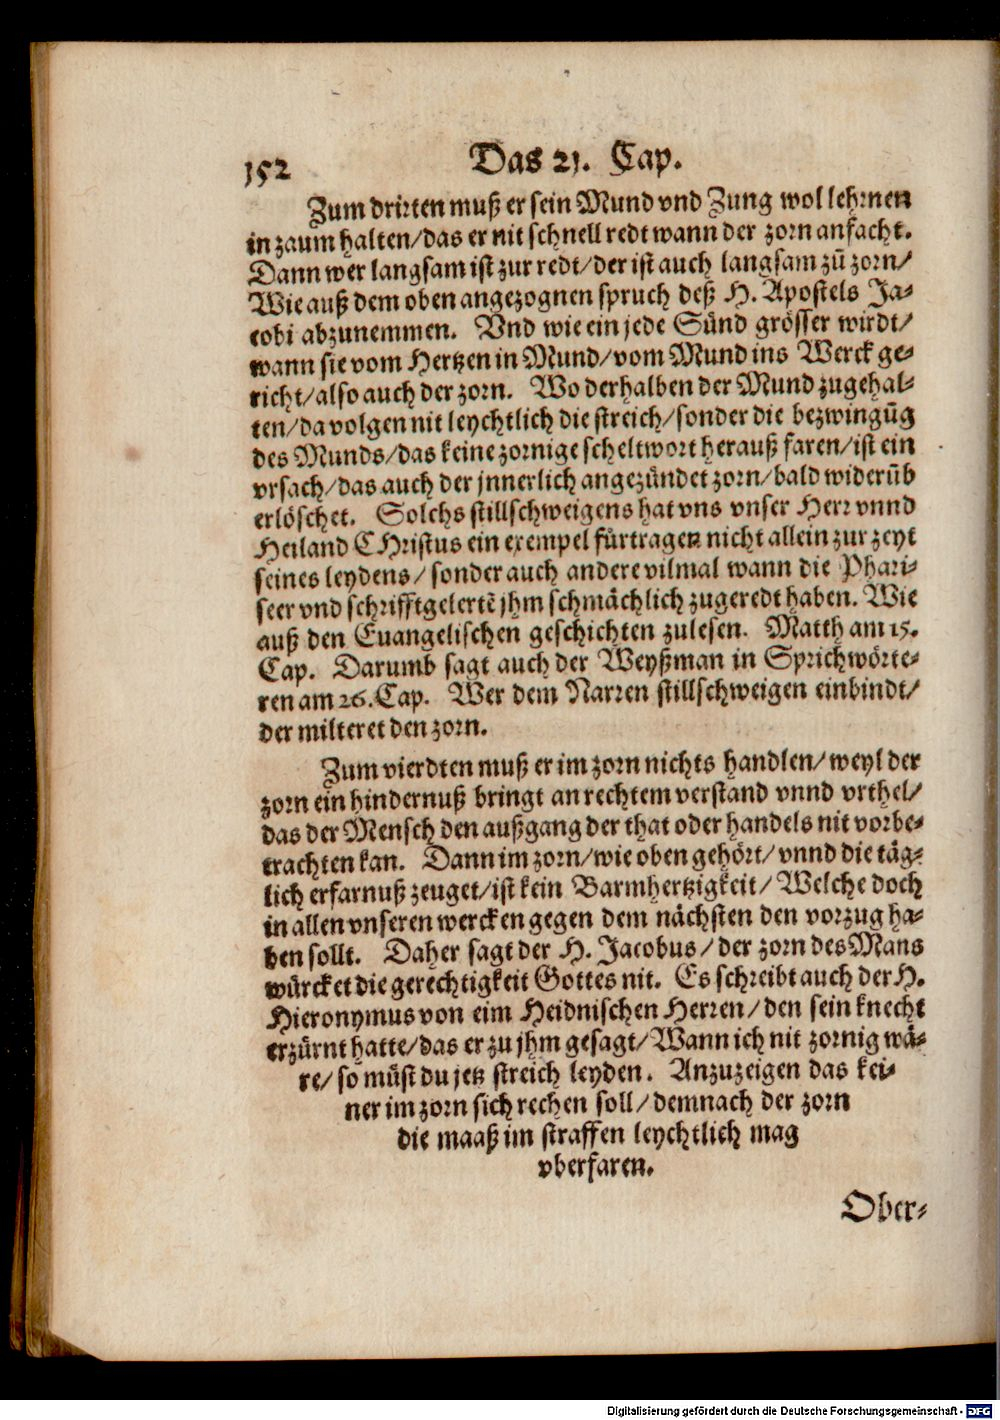 152 Das 21. Cap.
Zum dritten muß er sein Mund vnd Zung wol lehrnen
in zaum halten/das er nit schnell redt wann der zorn anfacht.
Dann wer langsam ist zur redt/der ist auch langsam zů zorn/
Wie auß dem oben angezognen spruch deß H. Apostels Ja-
cobi abzunemmen. Vnd wie ein jede Sünd grösser wirdt/
wann sie vom Hertzen in Mund/vom Mund ins Werck ge-
richt/also auch der zorn. Wo derhalben der Mund zugehal-
ten/da volgen nit leychtlich die streich/sonder die bezwingūg
des Munds/das keine zornige scheltwort herauß faren/ist ein
vrsach/das auch der jnnerlich angezündet zorn/bald widerūb
erlöschet. Solchs stillschweigens hat vns vnser Herr vnnd
Heiland CHristus ein exempel fürtragen nicht allein zur zeyt
seines leydens/sonder auch andere vilmal wann die Phari-
seer vnd schrifftgelertē jhm schmächlich zugeredt haben. Wie
auß den Euangelischen geschichten zulesen. Matth am 15.
Cap. Darumb sagt auch der Weyßman in Sprichwörte-
ren am 26.Cap. Wer dem Narren stillschweigen einbindt/
der milteret den zorn.
Zum vierdten muß er im zorn nichts handlen/weyl der
zorn ein hindernuß bringt an rechtem verstand vnnd vrthel/
das der Mensch den außgang der that oder handels nit vorbe-
trachten kan. Dann im zorn/wie oben gehört/vnnd die täg-
lich erfarnuß zeuget/ist kein Barmhertzigkeit/Welche doch
in allen vnseren wercken gegen dem nächsten den vorzug ha-
ben sollt. Daher sagt der H. Jacobus/der zorn des Mans
würcket die gerechtigkeit Gottes nit. Es schreibt auch der H.
Hieronymus von eim Heidnischen Herren/den sein knecht
erzürnt hatte/das er zu jhm gesagt/Wann ich nit zornig wä-
re/so müst du jetz streich leyden. Anzuzeigen das kei-
ner im zorn sich rechen soll/demnach der zorn
die maaß im straffen leychtlich mag
vberfaren.
Ober-
Digitalisierung gefördert durch die Deutsche Forschungsgemeinschaft - DFG